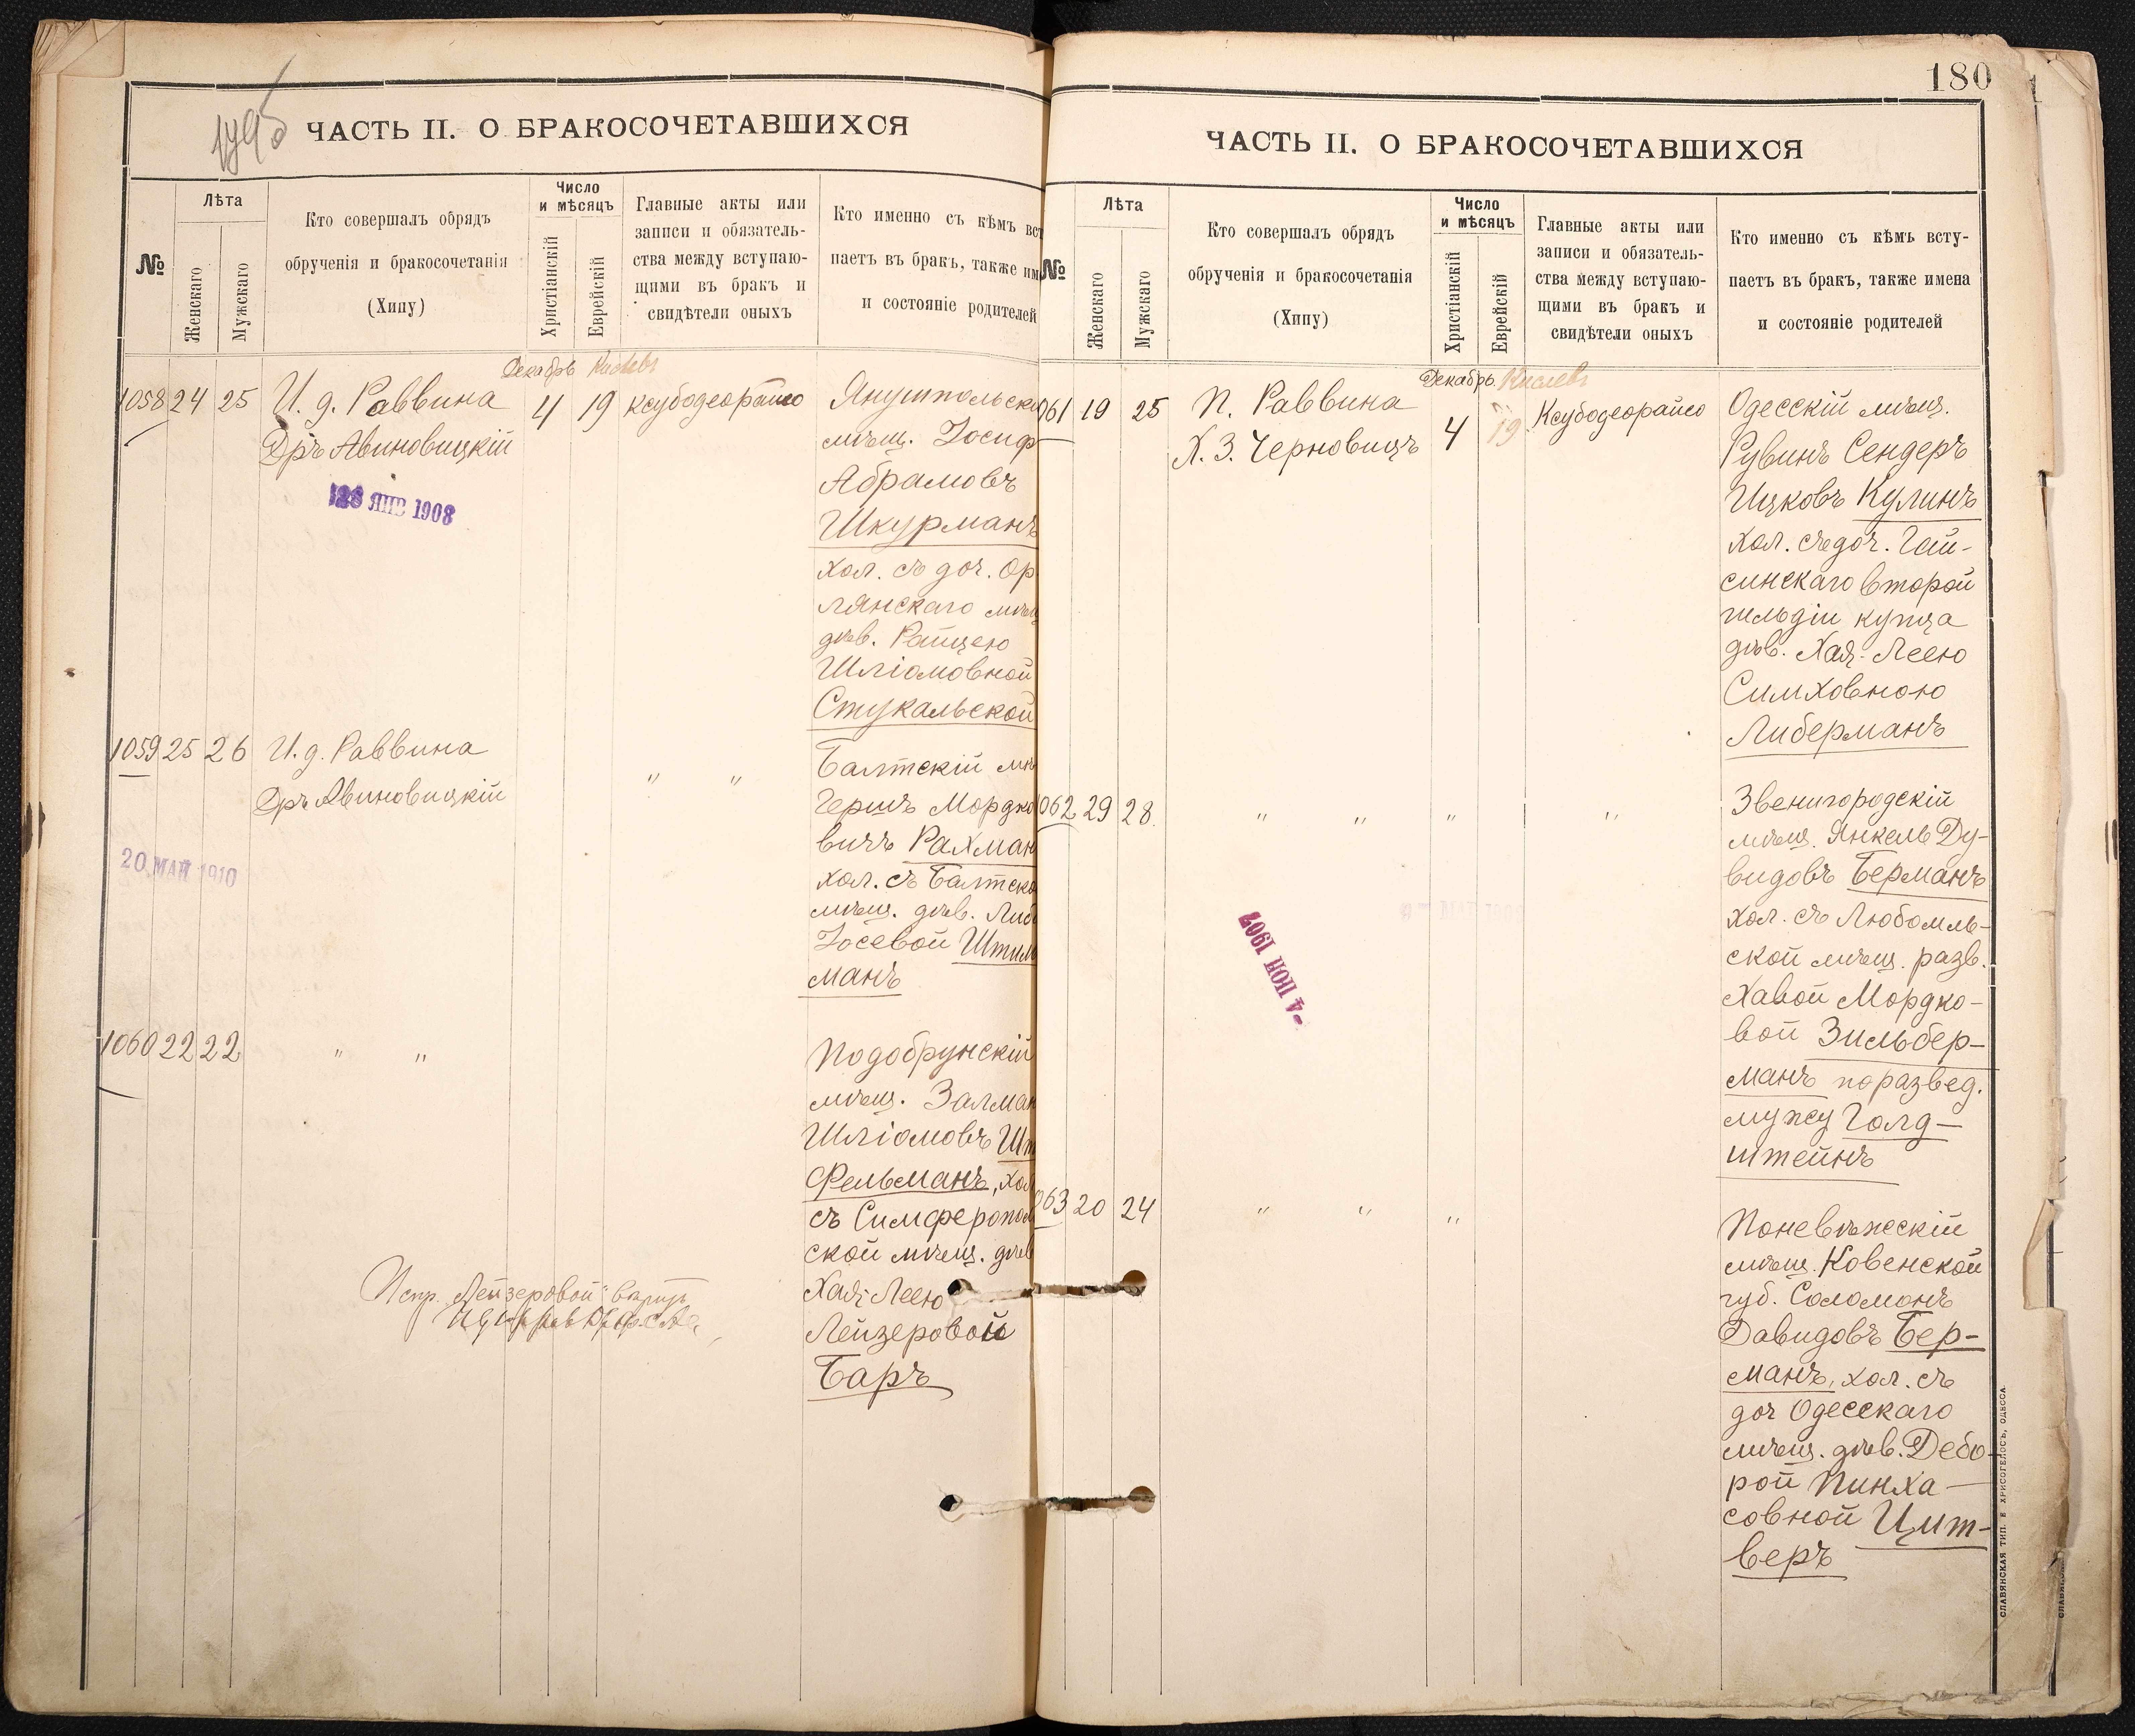 179б
ЧАСТЬ II. О БРАКОСОЧЕТАВШИХСЯ
№
Лѣта
Женскаго
Мужскаго
Кто совершалъ обрядъ
обрученія и бракосочетанія
(Хипу)
Число
и мѣсяцъ
Христіанскій
Еврейскій
Главные акты или
записи и обязатель-
ства между вступаю-
щими въ бракъ и
свидѣтели оныхъ
Кто именно съ кѣмъ вст
паетъ въ бракъ, также им
и состояніе родителей
Декабрь Кислевъ
1058 24 25 И. д. Раввина 4 19 Ксубодеорайсо
Дръ Авиновицкій
ЯНВ 1908
Янушпольскі
мѣщ. Іосиф
Абрамовъ
Шкурманъ
хол. съ доч. Ор
лянскаго мѣщ
дѣв. Райцею
Шліомовной
Стукальской
1059 25 26 И. д. Раввина " "
Дръ Авиновицкій
20 МАЙ 1910
Балтскій мѣ
Гершъ Мордко
вичъ Рахман
хол. съ Балтско
мѣщ. дѣв. Либ
Іосевой Штиль
манъ
1060 22 22 " "
Подобрунскій
мѣщ. Залман
Шліомовъ Шт
Фельманъ, хол
съ Симферопол
ской мѣщ. дѣв
Хая-Леею
Лейзеровой
Баръ
Испр. „Лейзеровой"
180
ЧАСТЬ II. О БРАКОСОЧЕТАВШИХСЯ
№
Лѣта
Женскаго
Мужскаго
Кто совершалъ обрядъ
обрученія и бракосочетанія
(Хипу)
Число
и мѣсяцъ
Христіанскій
Еврейскій
Главные акты или
записи и обязатель-
ства между вступаю-
щими въ бракъ и
свидѣтели оныхъ
Кто именно съ кѣмъ всту-
паетъ въ бракъ, также имена
и состояніе родителей
Декабрь Кислевъ
061 19 25 П. Раввина 4 19 Ксубодеорайсо
Х. З. Черновицъ
Одесскій мѣщ.
Рувинъ Сендеръ
Ицковъ Кулинъ
хол. съ доч. Гай-
синскаго второй
гильдіи купца
дѣв. Хая-Леею
Симховною
Либерманъ
062 29 28. " " " "
-4 ІЮН 1907
Звенигородскій
мѣщ. Янкель Ду-
видовъ Берманъ
хол. съ Любомль-
ской мѣщ. разв.
Хавой Мордко-
вой Зильбер-
манъ по развед.
мужу Голд-
штейнъ
063 20 24 " " "
Поневѣжскій
мѣщ. Ковенской
губ. Соломонъ
Давидовъ Бер-
манъ, хол. съ
доч Одесскаго
мѣщ. дѣв. Дебо-
рой Пинха-
совной Цит-
веръ
СЛАВЯНСКАЯ ТИП. Е ХРИСОГЕЛОСЪ, ОДЕССА.